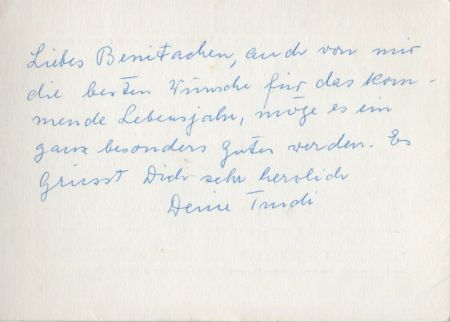 Liebes Benitachen, auch von mir
die besten Wünsche für das kom-
mende Lebensjahr, möge es ein
ganz besonders gutes werden. Es
grüsst Dich sehr herzlich
Deine Trudi